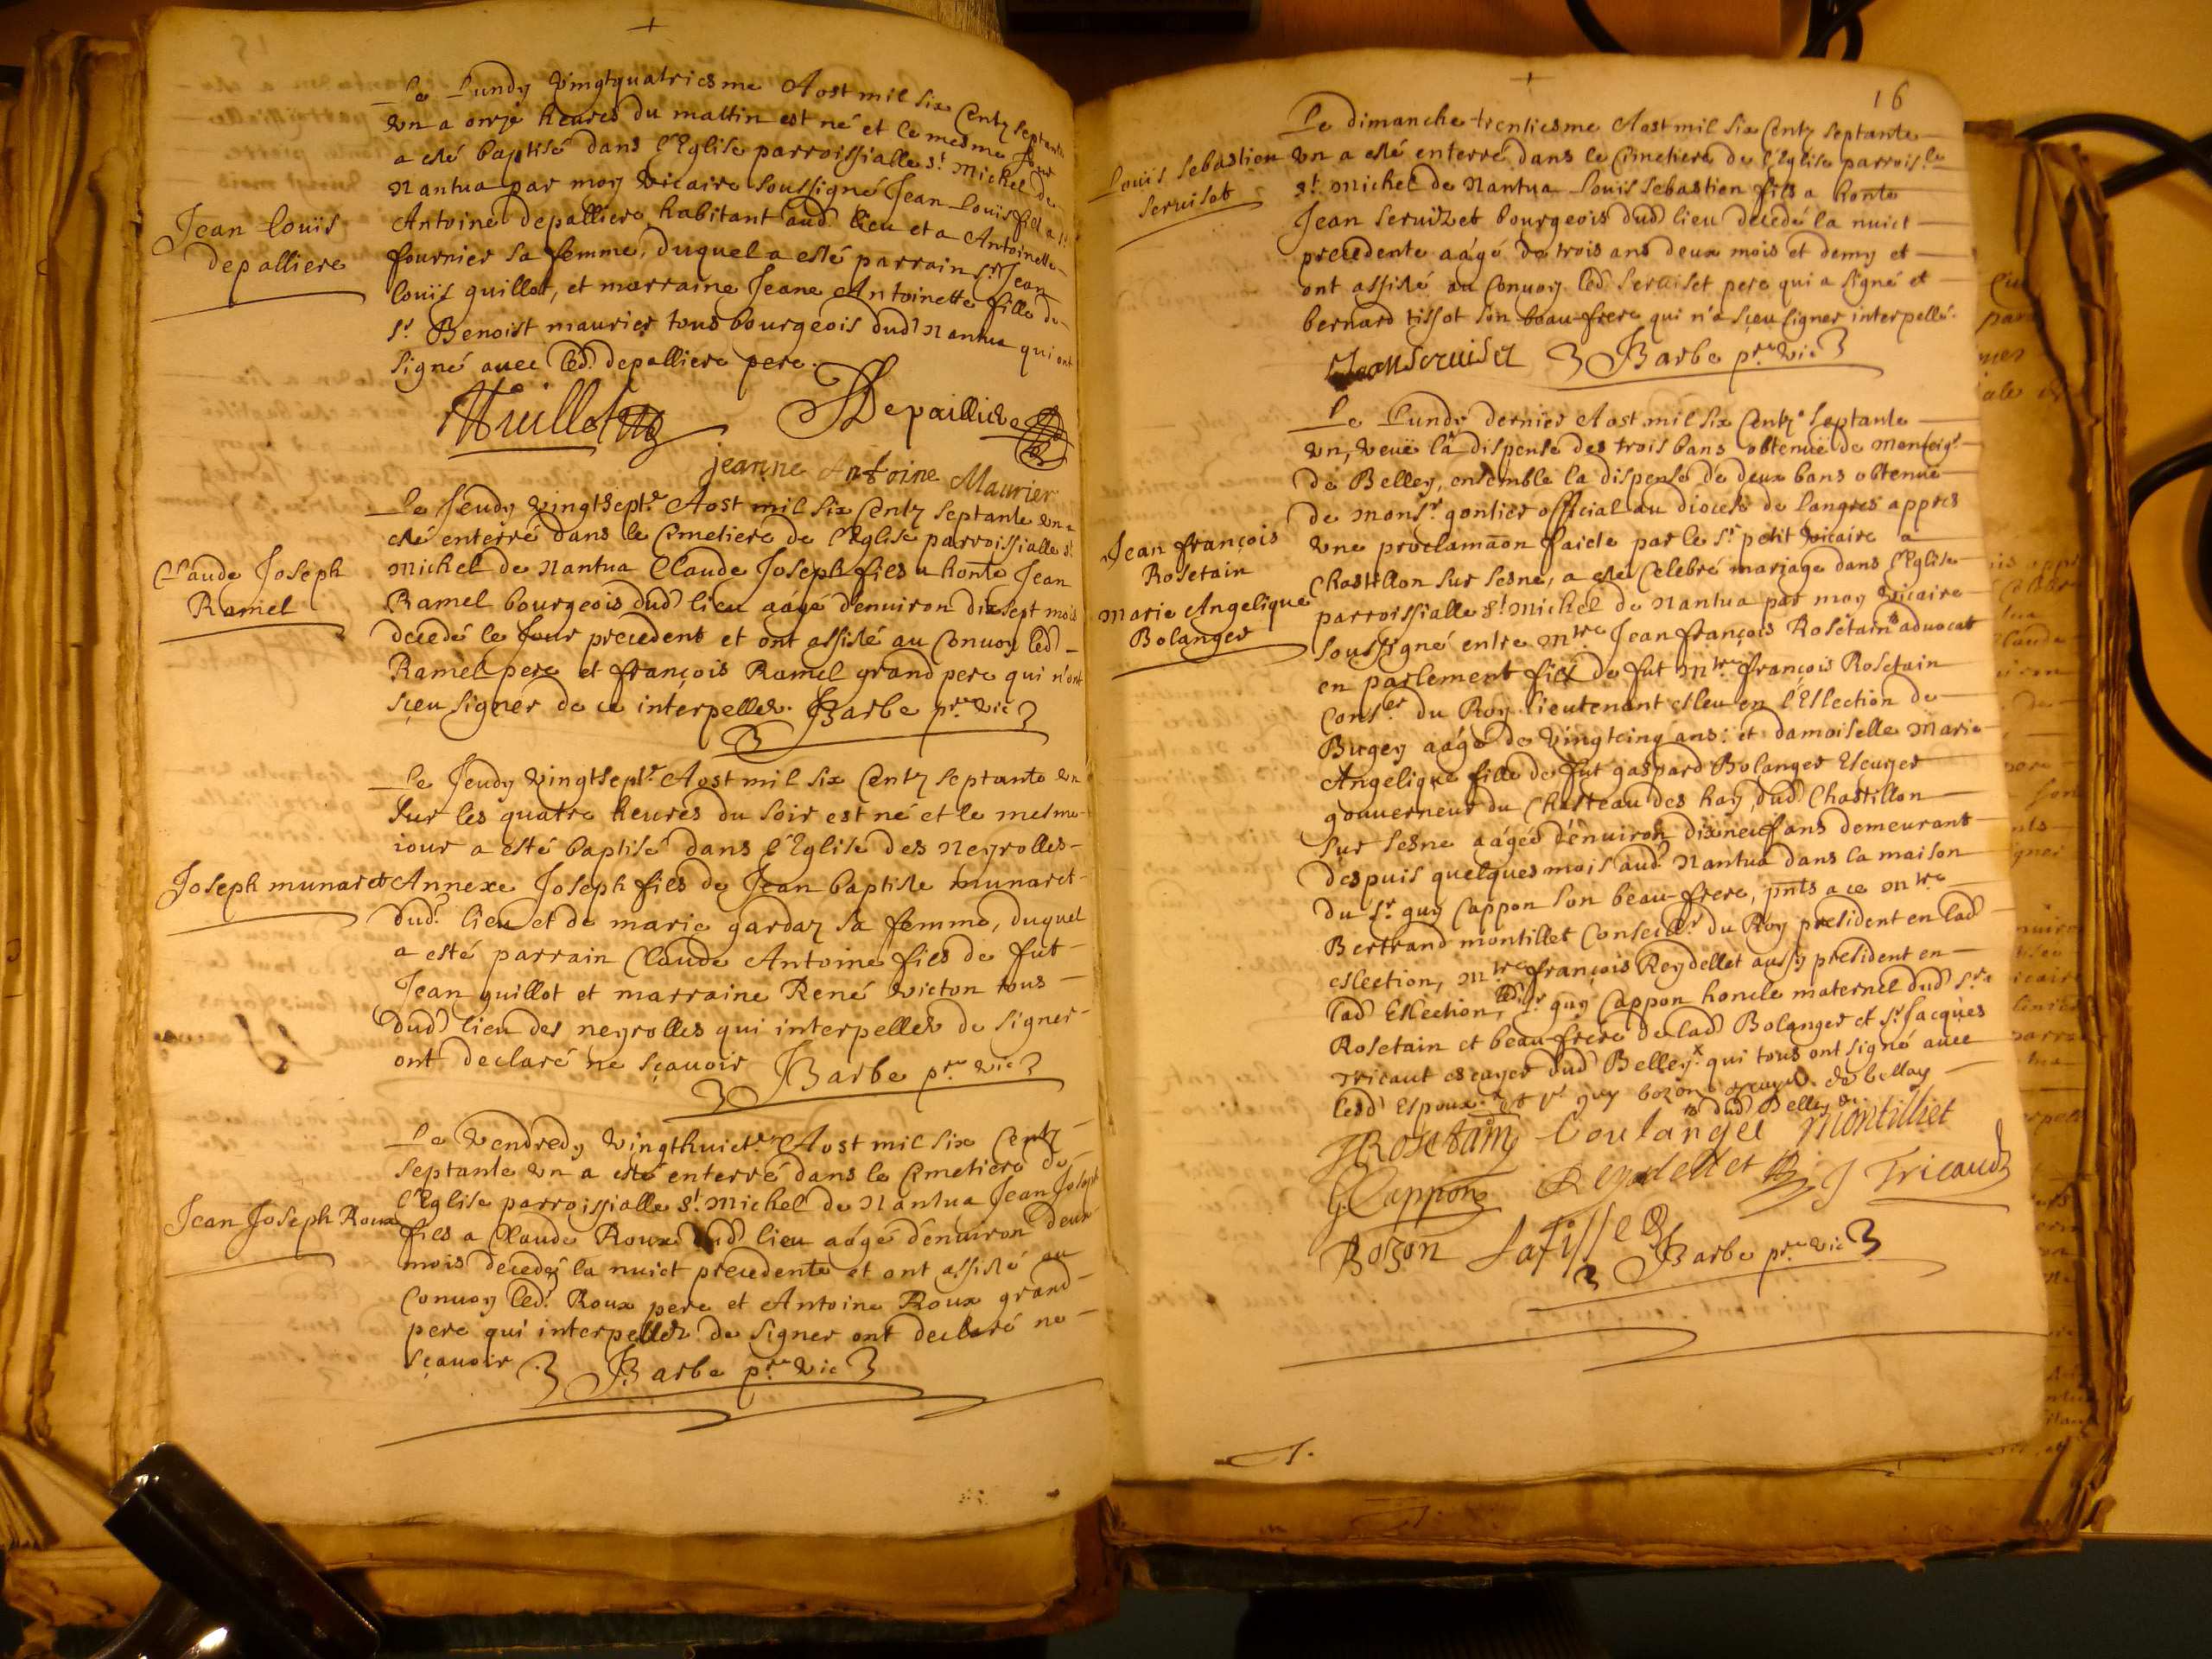 Le Lundy vingtquatriesme Aost mil six Centz septante
vn a onze heures du mattin est né et le mesme Jour
a esté baptisé dans l'Eglise parroissialle st. Michel de
Nantua par moy vicaire soussigné Jean Louis filz a sr.
Jean Louïs
depalliere
Antoine depalliere habitant aud. lieu et a Antoinette
fournier sa femme, duquel a esté parrain sr. Jean
louïs guillot, et marraine Jeane Antoinette fille de
sr. Benoist maurier tous bourgeois dud. Nantua qui ont
signé auec led. depalliere pere.
Guillot
Depailliere
jeanne Antoine Maurier
Le Jeudy vingtsept.e Aost mil six Centz septante vn a
esté enterré dans le Cimetiere de l'Eglise parroissialle st.
Claude Joseph
Ramel
michel de Nantua Claude Joseph filz a honte. Jean
Ramel bourgeois dud. lieu aágé denuiron dixsept mois
decedé le Jour precedent et ont assisté au Conuoy led.
Ramel pere et françois Ramel grand pere qui n'ont
sçeu signer de ce interpellez. Barbe pre. vic
Le Jeudy vingtsept.e Aost mil six Centz septante vn
sur les quatre heures du soir est né et le mesme
iour a esté baptisé dans l'Eglise des Neyrolles
Joseph munaret
Annexe Joseph filz de Jean baptiste munaret
dud. lieu et de marie gardaz sa femme, duquel
a esté parrain Claude Antoine filz de fut
Jean guillot et marraine René victon tous
dud. lieu des neyrolles qui interpellez de signer
ont declaré ne sçauoir Barbe pre. vic
Le vendredy vingthuict.e Aost mil six Centz
septante vn a esté enterré dans le Cimetiere de
l'Eglise parroissialle st. Michel de Nantua Jean Joseph
Jean Joseph Roux
filz a Claude Roux dud. lieu aágé denuiron deux
mois decedé la nuict precedente et ont assisté au
Conuoy led. Roux pere et Antoine Roux grand
pere qui interpellez de signer ont declaré ne
sçauoir. Barbe pre. vic
16
Le dimanche trentiesme Aost mil six Centz septante
Louis Sebastien
Seruiset
vn a esté enterré dans le Cimetiere de l'Eglise parrois.le
st. Michel de Nantua Louis Sebastien filz a honte.
Jean Seruizet bourgeois dud. lieu decedé la nuict
precedente aágé de trois ans deux mois et demy et
ont assisté au Conuoy led. Seruiset pere qui a signé et
bernard tissot son beau-frere qui n'a sçeu signer interpellé.
Jean Seruiset Barbe pre. vic
Le Lundy dernier Aost mil six Centz septante
vn, veuë la dispense des trois bans obtenuë de Monseigr.
de Belley, ensemble la dispense de deux bans obtenuë
de Monsr. gontier official au diocese de langres appres
Jean françois
Rosetain
Marie Angelique
Bolanger
vne proclamaôn faicte par le sr. petit vicaire a
Chastillon sur sesne, a esté Celebré mariage dans l'Eglise
parroissialle st. Michel de Nantua par moy vicaire
soussigné entre Mtre. Jean françois Rosetain aduocat
en parlement filz de fut Mtre. françois Rosetain
Conser. du Roy lieutenant esleu en l'Eslection de
Bugey aágé de vingtcinq ans: et damoiselle Marie
Angelique fille de fut gaspard Bolanger Escuyer
gouuerneur du Chasteau des hay, dud. Chastillon
sur sesne aágée denuiron dixneuf ans demeurant
despuis quelques mois aud. Nantua dans la maison
du sr. guy Cappon son beau-frere, pnts a ce Mtre.
Bertrand montillet Conseillr. du Roy president en lad.
eslection, Mtre. françois Reydellet aussy president en
lad. Eslection, led. sr. guy Cappon honcle maternel dud. sr.
Rosetain et beau-frere de lad. Bolanger et sr. Jacques
Tricaut escuyer dud. Belley x qui tous ont signé auec
lesd. Espoux. x et sr. guy bozon escuyer de bellay
dud. Belley
JRosetain boulanger Montilliet
G. Cappon Reydellet J Tricaud
Bozon
Barbe pre. vic